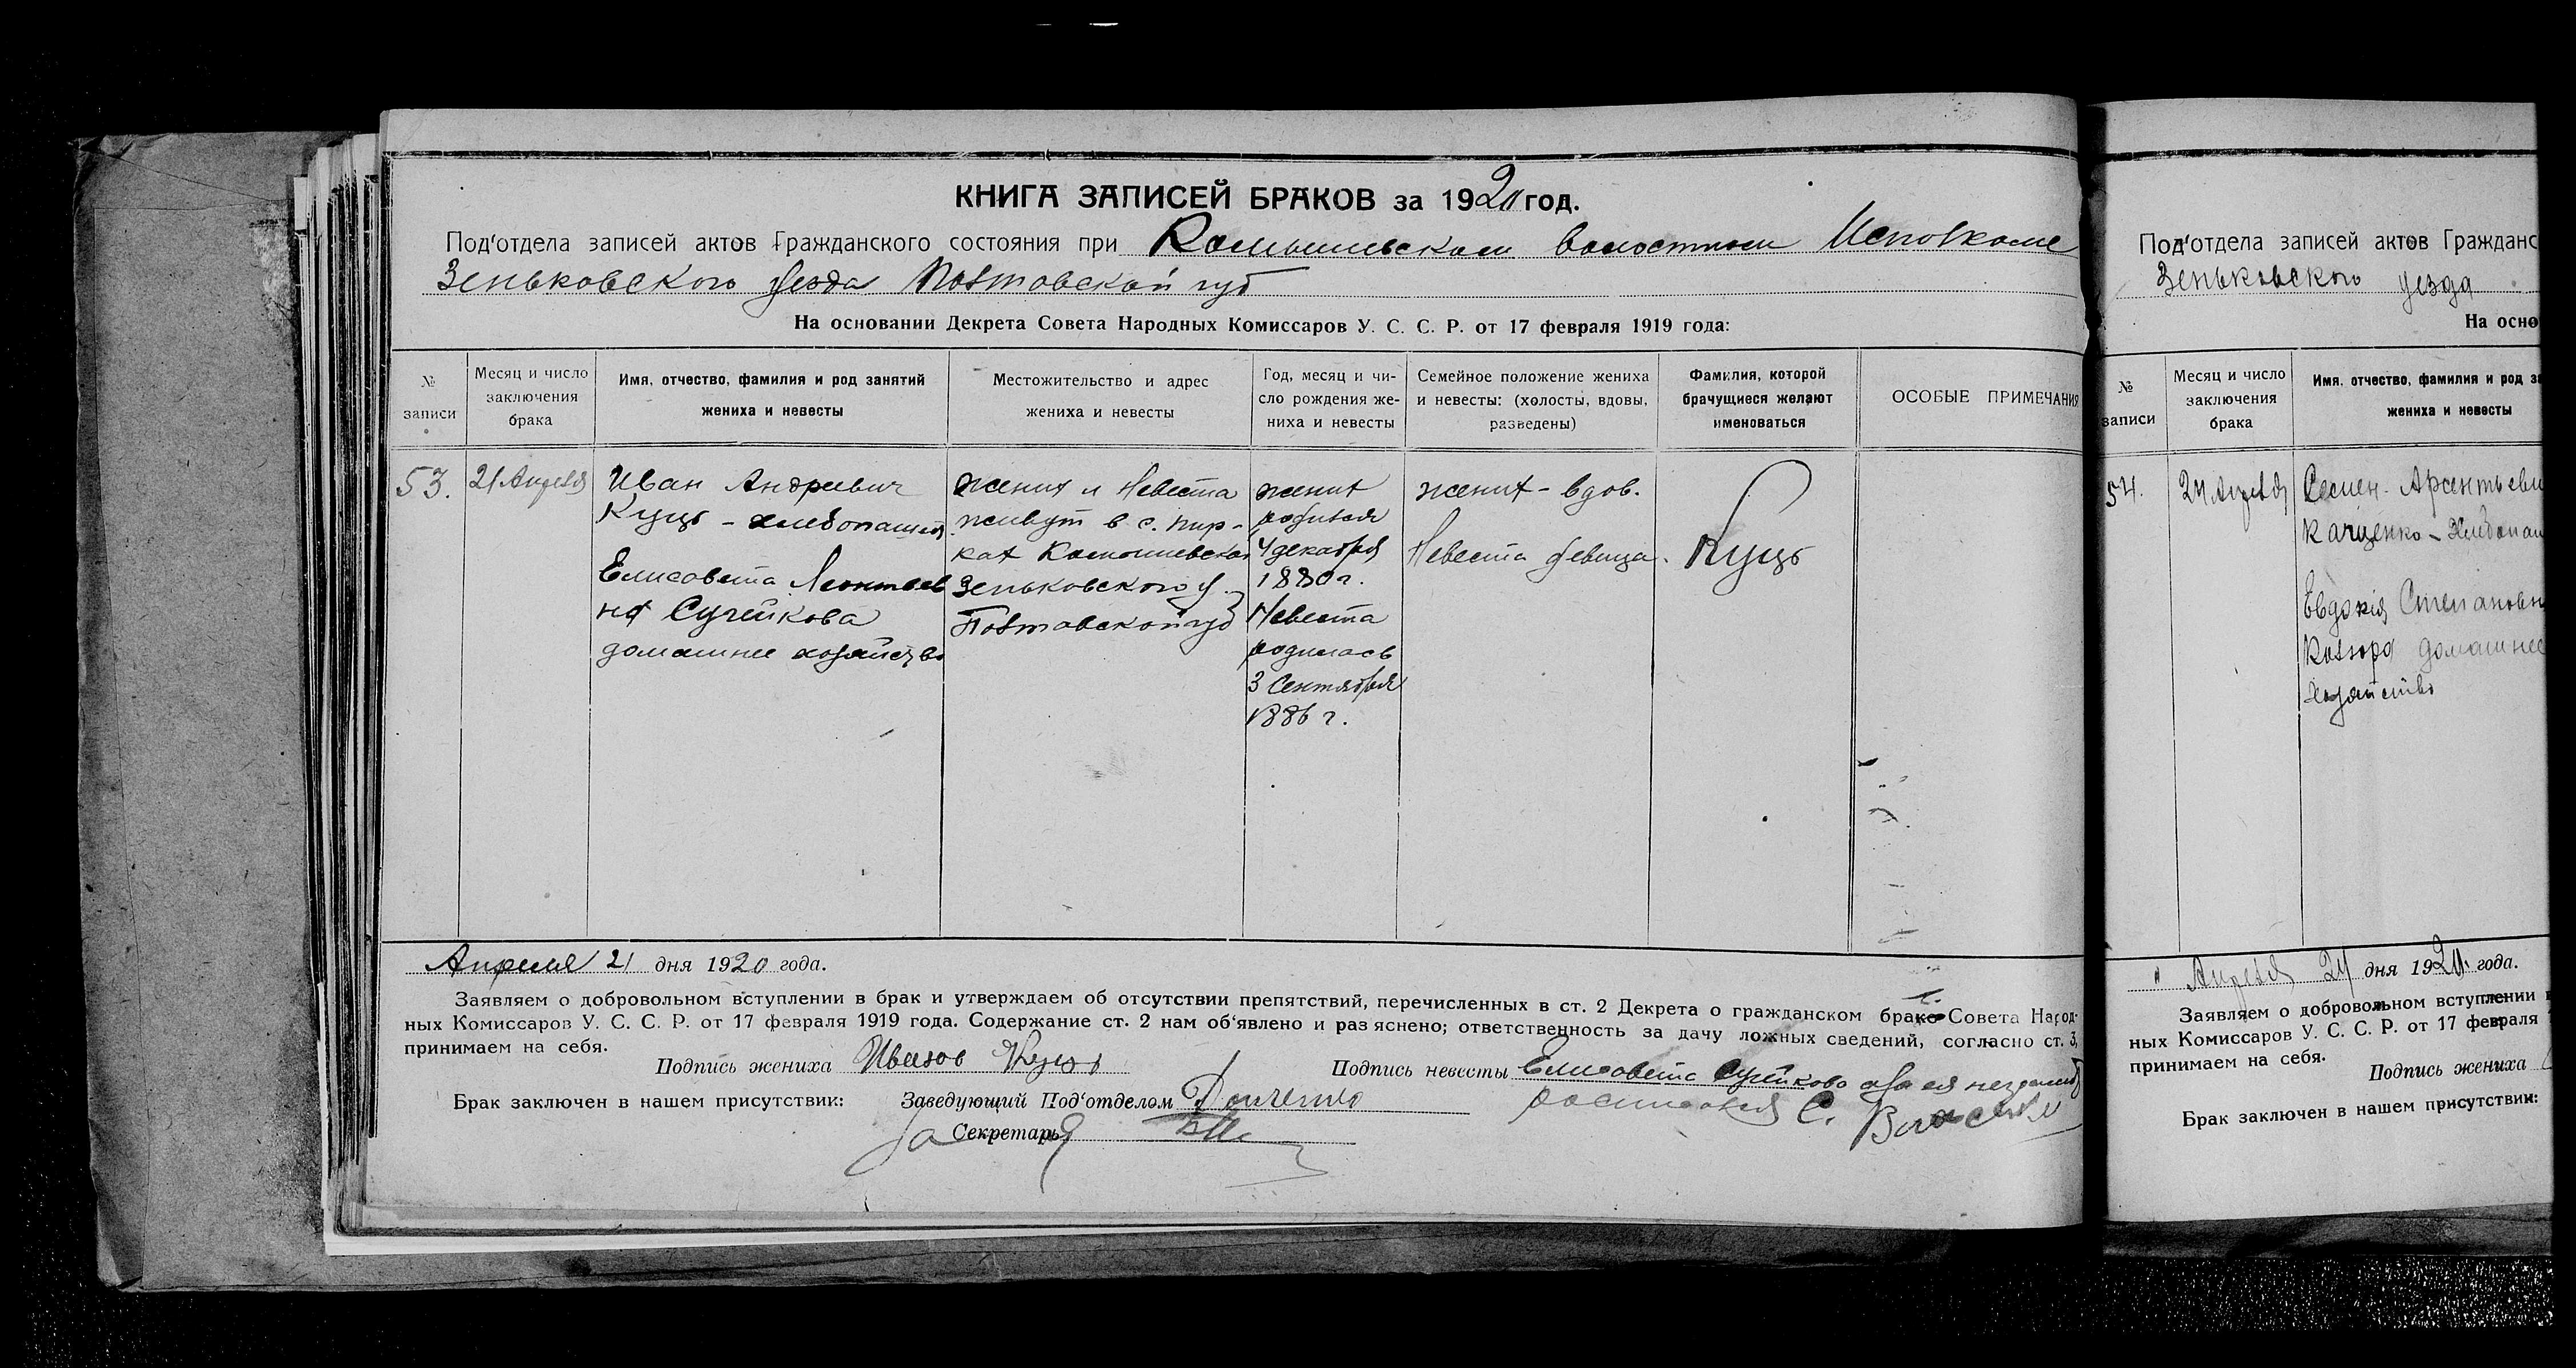 КНИГА ЗАПИСЕЙ БРАКОВ за 1920 год.
Под'отдела записей актов Гражданского состояния при Камышевском волостном Исполкоме
Зеньковского уезда Полтавской губ
На основании Декрета Совета Народных Комиссаров У. С. С. Р. от 17 февраля 1919 года:
№ записи
Месяц и число заключения брака
Имя, отчество, фамилия и род занятий жениха и невесты
Местожительство и адрес жениха и невесты
Год, месяц и чи-
сло рождения же-
ниха и невесты
Семейное положение жениха
и невесты: (холосты, вдовы,
разведены)
Фамилия, которой
брачущиеся желают
именоваться
ОСОБЫЕ ПРИМЕЧАНИЯ
53.
21 Апреля
Иван Андреевич
Куць - хлебопашец
Елисовета Леонтьев
на Сучейкова
домашнее хозяйство
жених и Невеста
живут в с. Пир-
ках Камышевской
Зеньковского у.
Полтавской губ
жених
родился
4 декабря
1880 г.
Невеста
родилась
3 Сентября
1886 г.
жених - вдов.
Невеста девица.
Куць
Апреля 21 дня 1920 года.
Заявляем о добровольном вступлении в брак и утверждаем об отсутствии препятствий, перечисленных в ст. 2 Декрета о гражданском браке Совета Народ-
ных Комиссаров У. С. С. Р. от 17 февраля 1919 года. Содержание ст. 2 нам об'явлено и раз яснено; ответственность за дачу ложных сведений, согласно ст. 3,
принимаем на себя.
Подпись жениха
Подпись невесты Елисовета Сучейкова а за ея
С.
Брак заключен в нашем присутствии: Заведующий Под'отделом
За Секретарь
Под'отдела записей актов Гражданс
Зеньковского уезда
На осно
№ записи
Месяц и число
заключения
брака
Имя, отчество, фамилия и род за
жениха и невесты
54.
24 Апреля
Семен Арсентьеви
Кащенко - Хлебопаш
Евдокия Степановн
Козюра домашнее
хозяйство
Апреля 24 дня 1920 года.
Заявляем о добровольном вступлении в
ных Комиссаров У. С. С. Р. от 17 февраля
принимаем на себя.
Подпись жениха
Брак заключен в нашем присутствии: